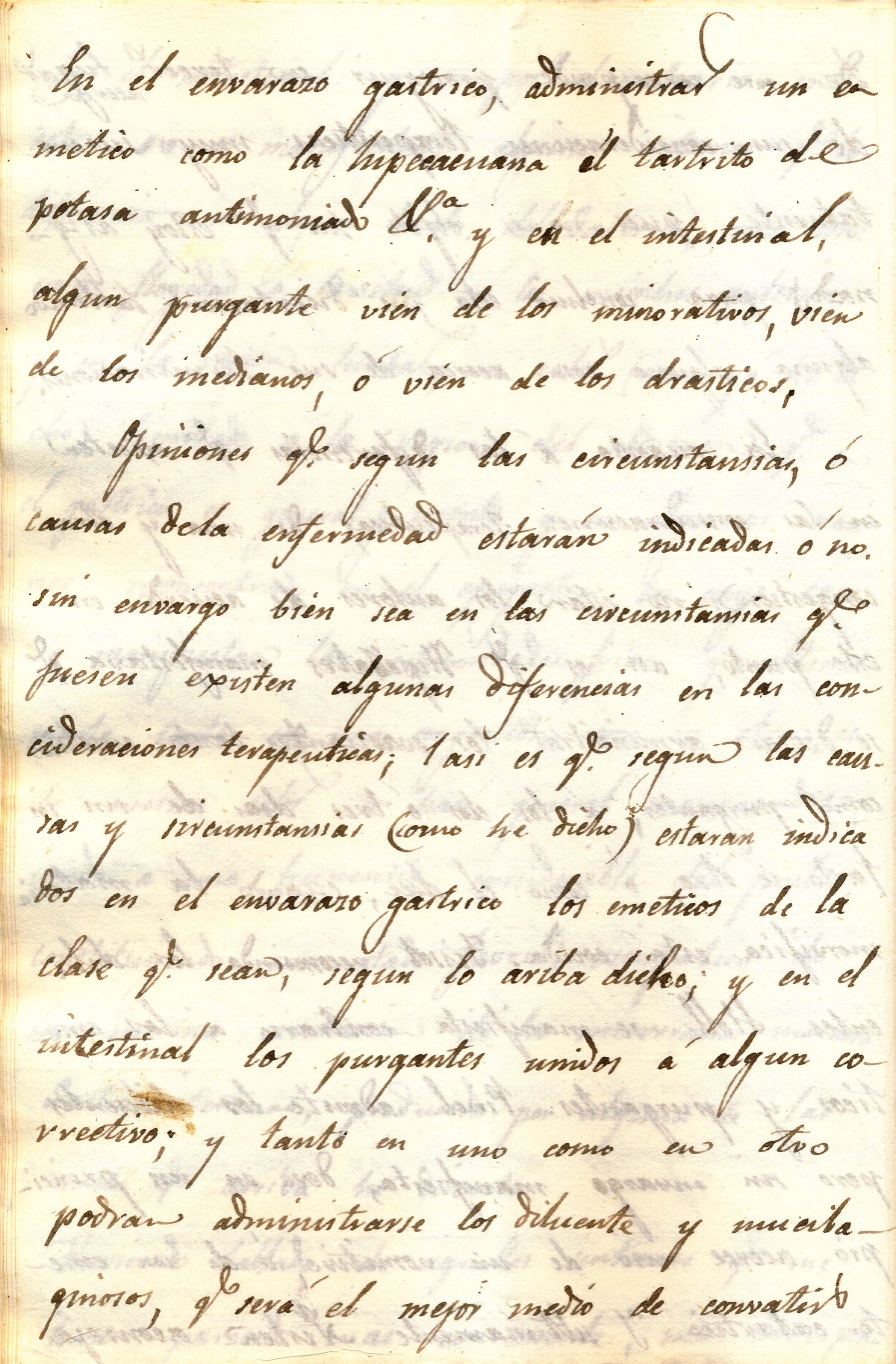 En el envarazo gastrico, administrar un e-
metico como la hipecacuana él tartrito de
potasa antimoniado &.ª y en el intestinal,
algun purgante vien de los minorativos, vien
de los medianos, ó vien de los drasticos,
Opiniones q.e segun las circunstansias, ó
causas dela enfermedad estarán indicadas ó no.
sin envargo bien sea en las circunstansias q.e
fuesen existen algunas diferencias en las con-
cideraciones terapeuticas; I asi es q.e segun las cau-
sas y sircunstansias (como he dicho) estaran indica
dos en el envarazo gastrico los emeticos de la
clase q.e sean, segun lo ariba dicho; y en el
intestinal los purgantes unidos á algun co-
rrectivo; y tanto en uno como en otro
podran administrarse los diluente y mucila-
ginosos, q.e será el mejor medio de convatir